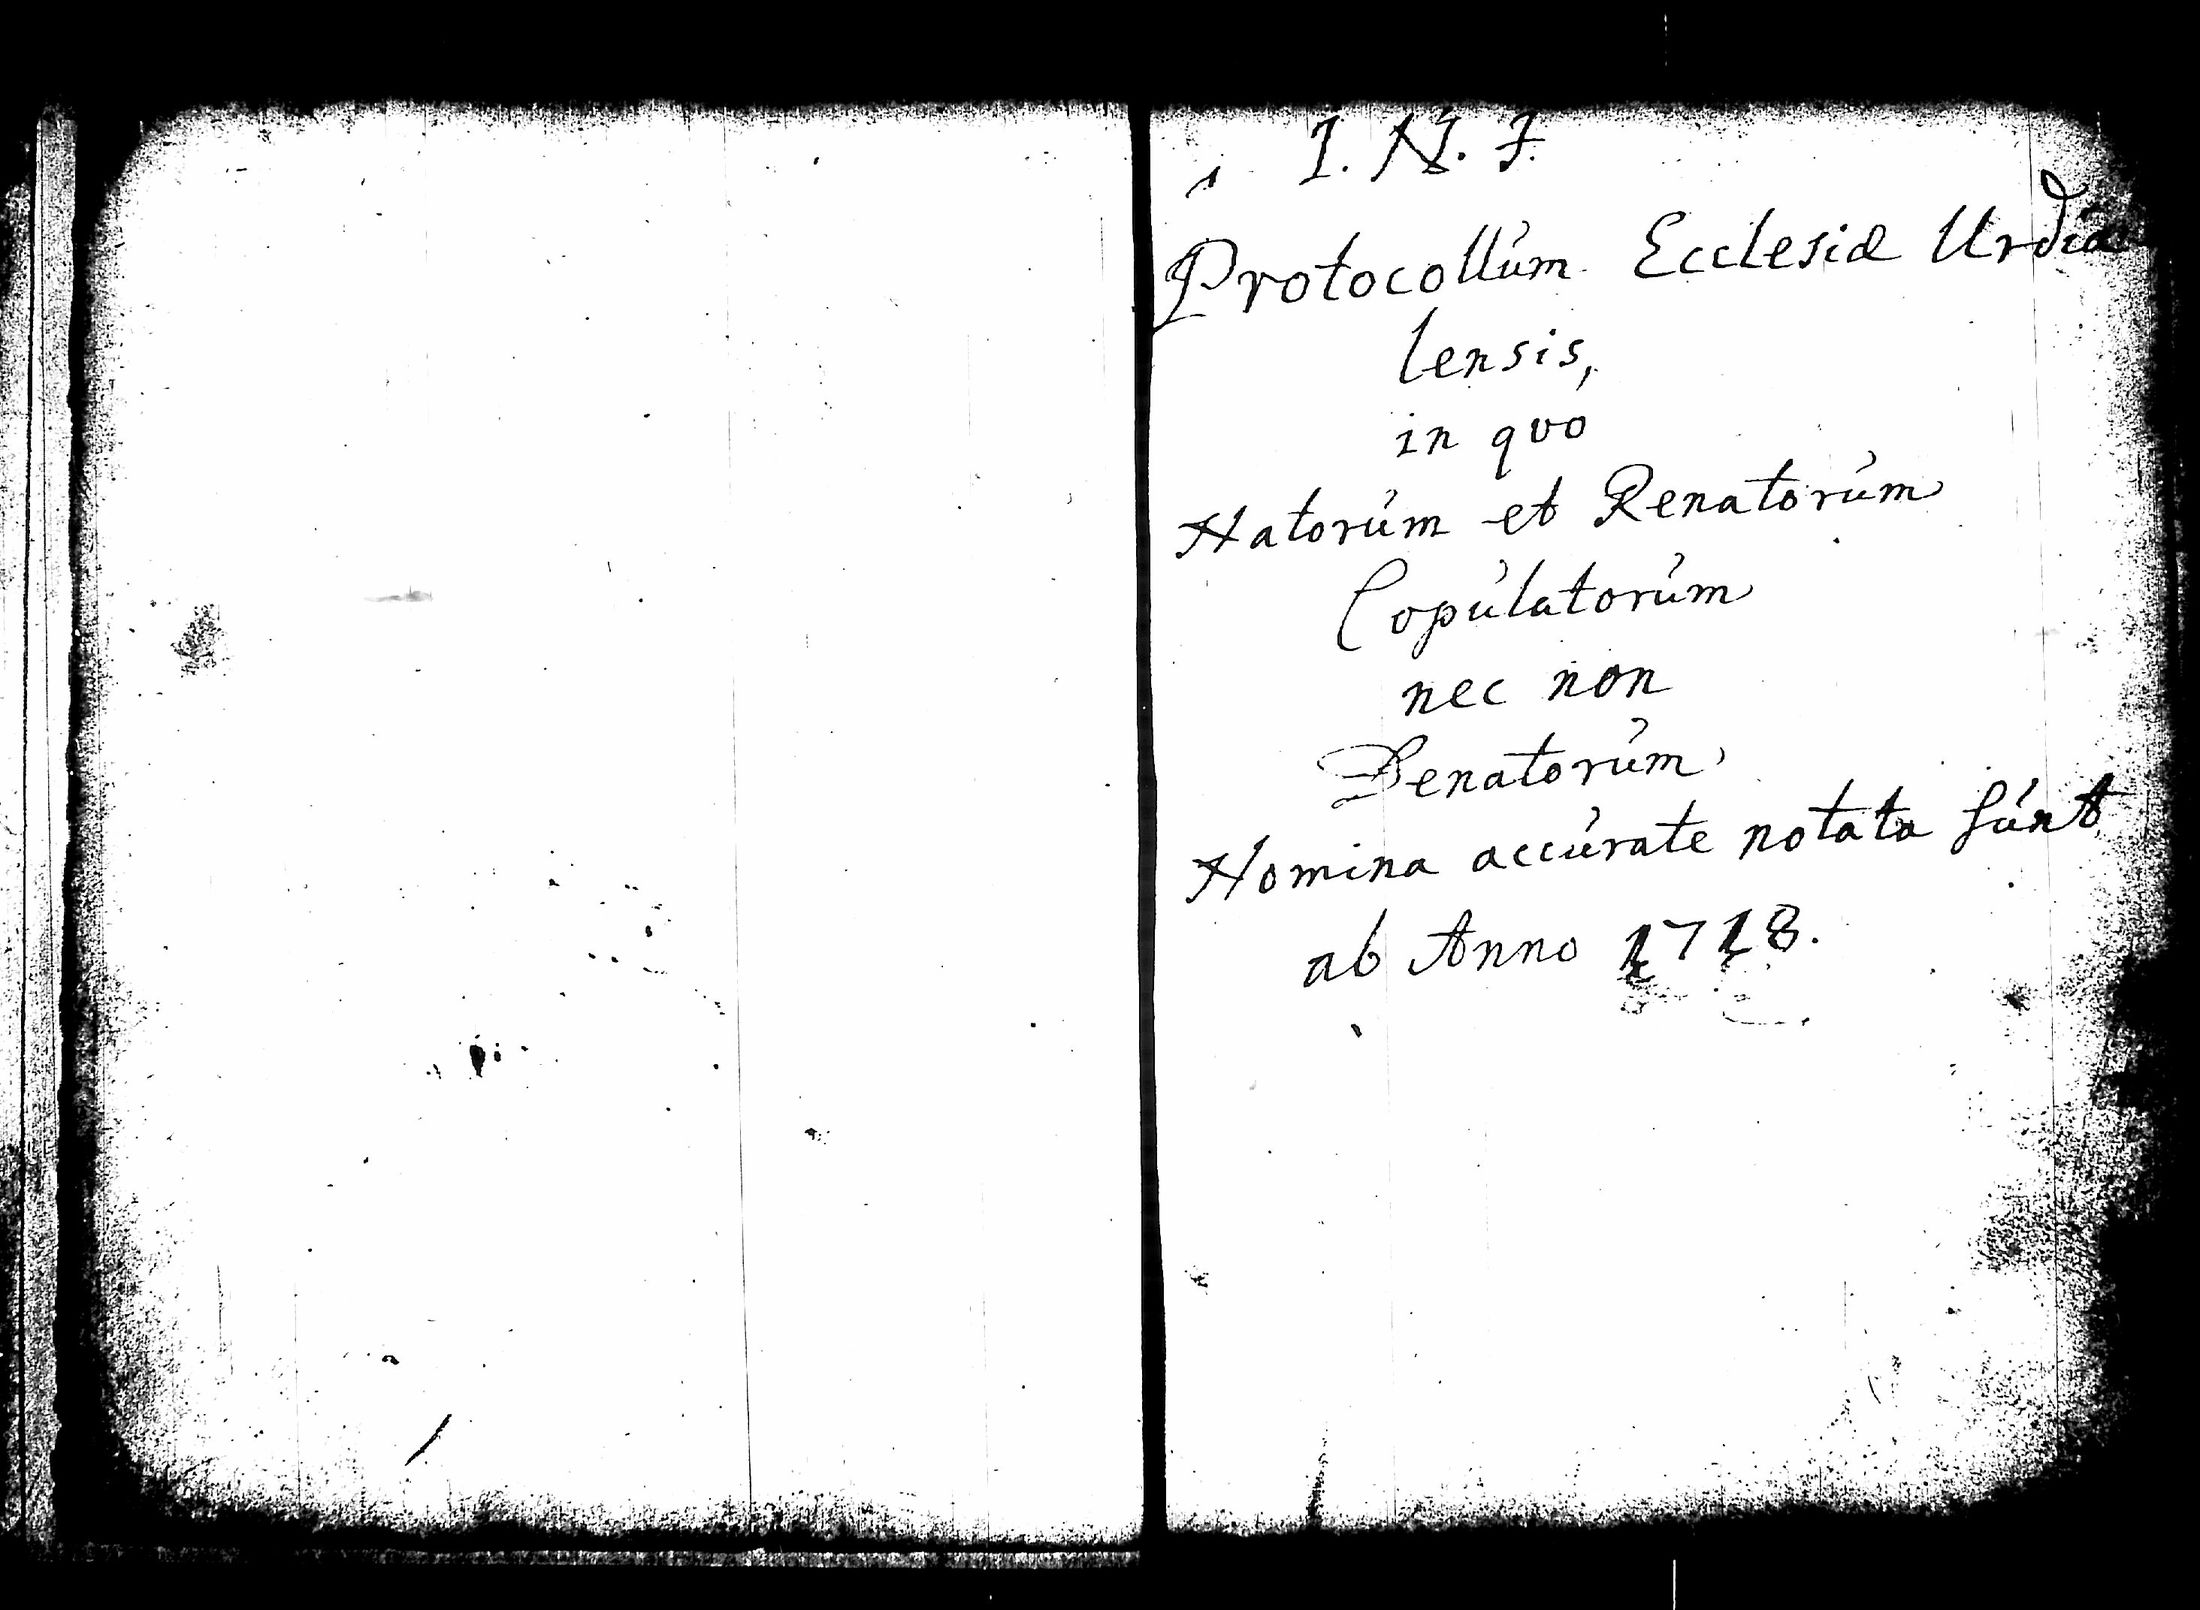 I. N. J.
Protocollum Ecclesiæ Urdia
lensis,
in quo
Natorum et Renatorum
Copulatorum
nec non
Denatorum
Nomina accurate notata sunt
ab Anno 1718.